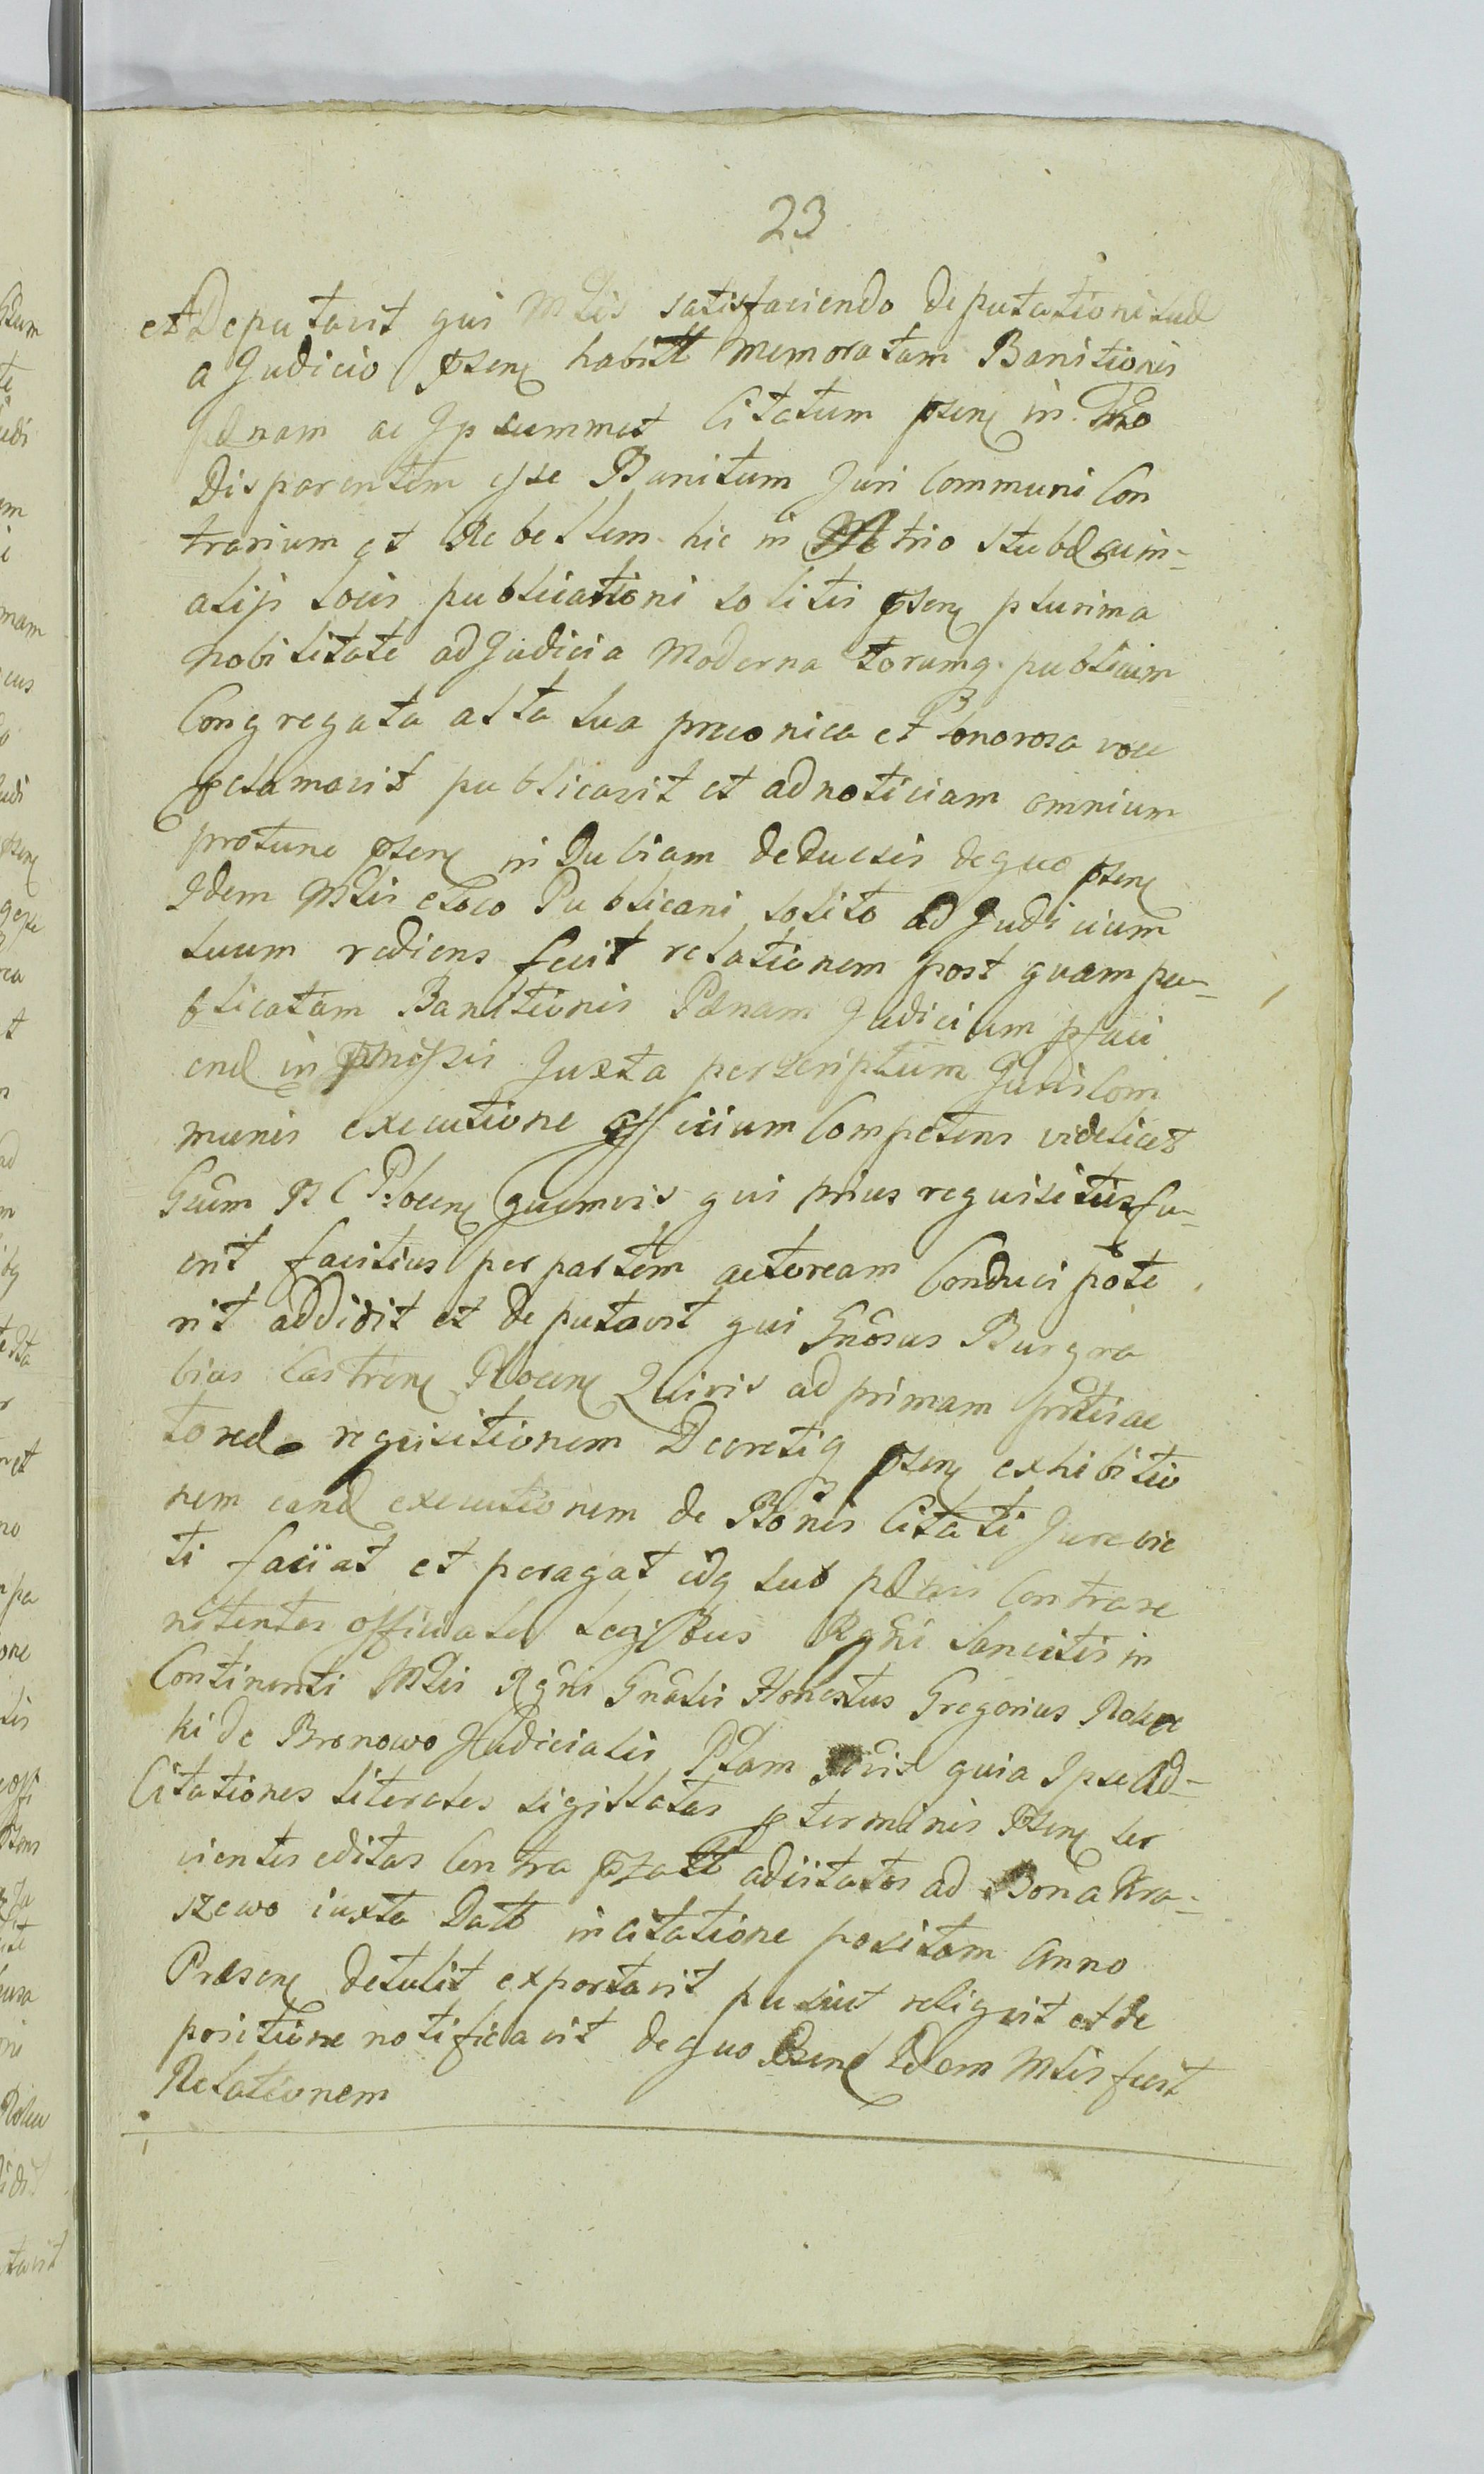 23
et Deputavit qui Mlis satisfaciendo deputationi suae
a Judicio psen habitt memoratam Banitionis
Paenam ac Ipsummet Citatum psen in Tno
Disparentem esse Banitum Juri Communi Con
trarium et Rebellem hic in Atrio Stubae ac in-
alijs locis publicationi solitis psen plurima
Nobilitate ad Judicia Moderna forumq. publicum
Congregata alta sua praeconica et sonorosa voce
pclamavit publicavit et ad noticiam omnium
protunc psen in Dubiam deduxit de quo psen
Idem Mlis e loco Publicani solito ad Judicium
suum rediens fecit relationem post quam pu-
blicatam Banitionis Paenam Judicium pfaci
end in pmissis Juxta perscriptum Juris Com
munis executione officium Competens videlicet
Gcum R C Plocen quemvis qui prius requisitus fu-
erit facilius per partem actoream Conduci pote
rit addidit et deputavit qui Gnosus Burgra
bius Castren Plocen Quivis ad primam prtis ac
toreae requisitionem Decretiq psen exhibitio
nem eand executionem de Bonis Citati Jure vic
ti faciat et peragat idq sub paenis Contrave
nitentes officiales legibus Rgni sancitis in
Continenti Mlis Rgni Gnalis Honestus Gregorius
ki de Bronowo Judicialis Plam quia Ipse Ad-
Citationes literales sigillatas p terminis psen ser
vientes editas Contra psatt adcitatos ad Bona Kra-
szewo iuxta Datt in citatione positam Anno
Praesen detulit exportavit posuit reliquit et de
positione notificavit de quo Psen Idem Mlis fecit
Relationem